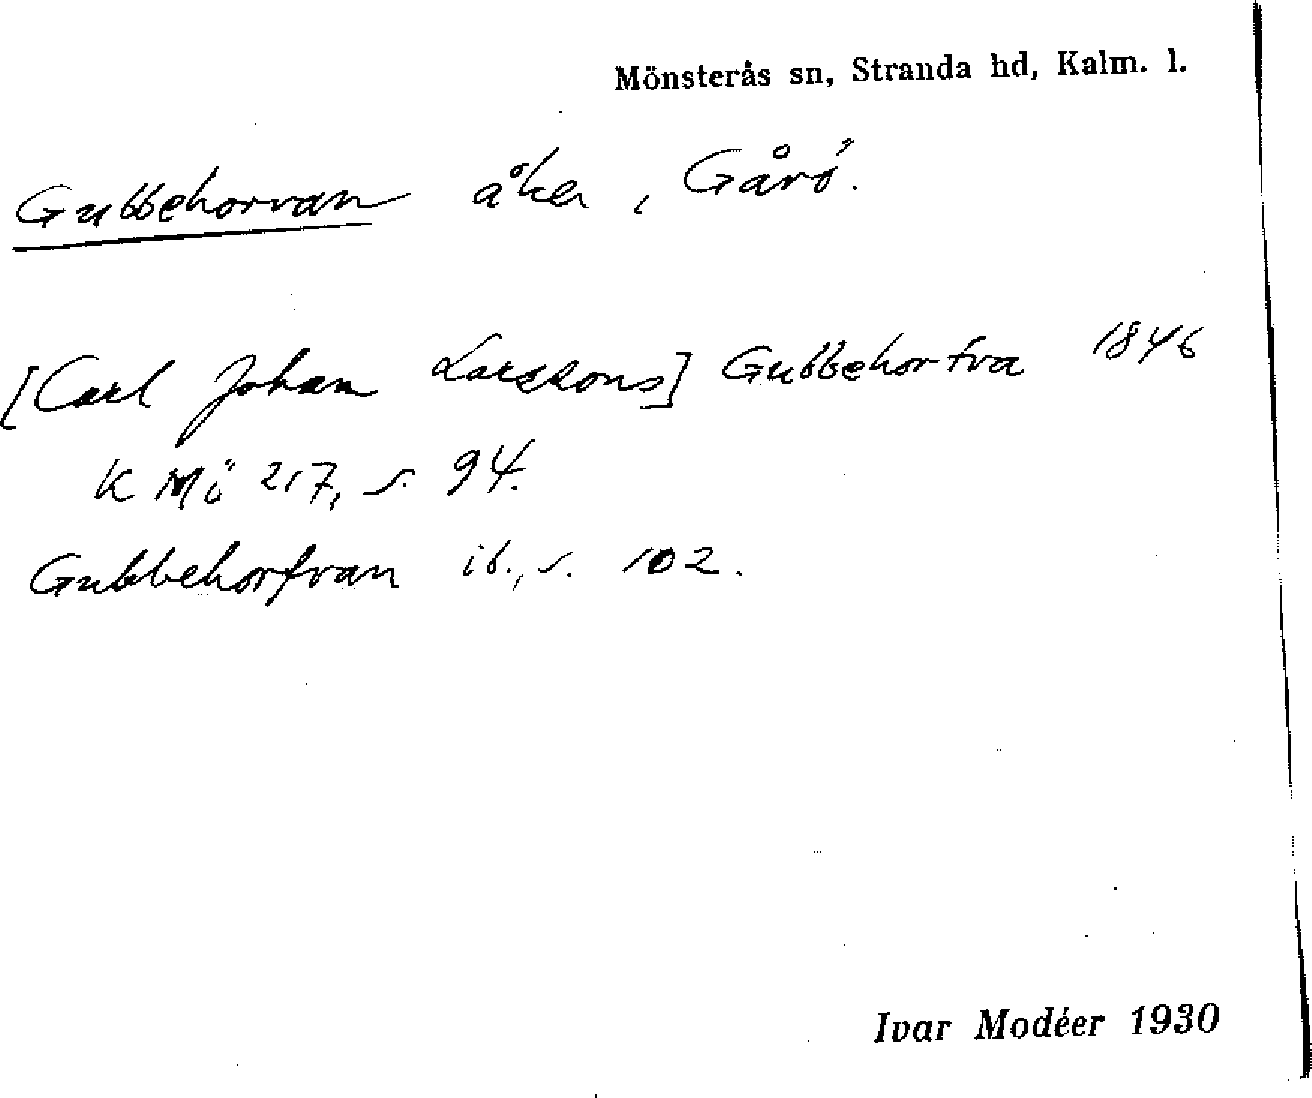 Mönsterås sn, Stranda hd, Kalm. l.
Gubbehorvan åker, Gårö.
[Carl Johan Larssons] Gubbehorfva 1846
K Mö 217, s. 94.
Gubbehorfvan ib., s. 102.
Ivar Modéer 1930